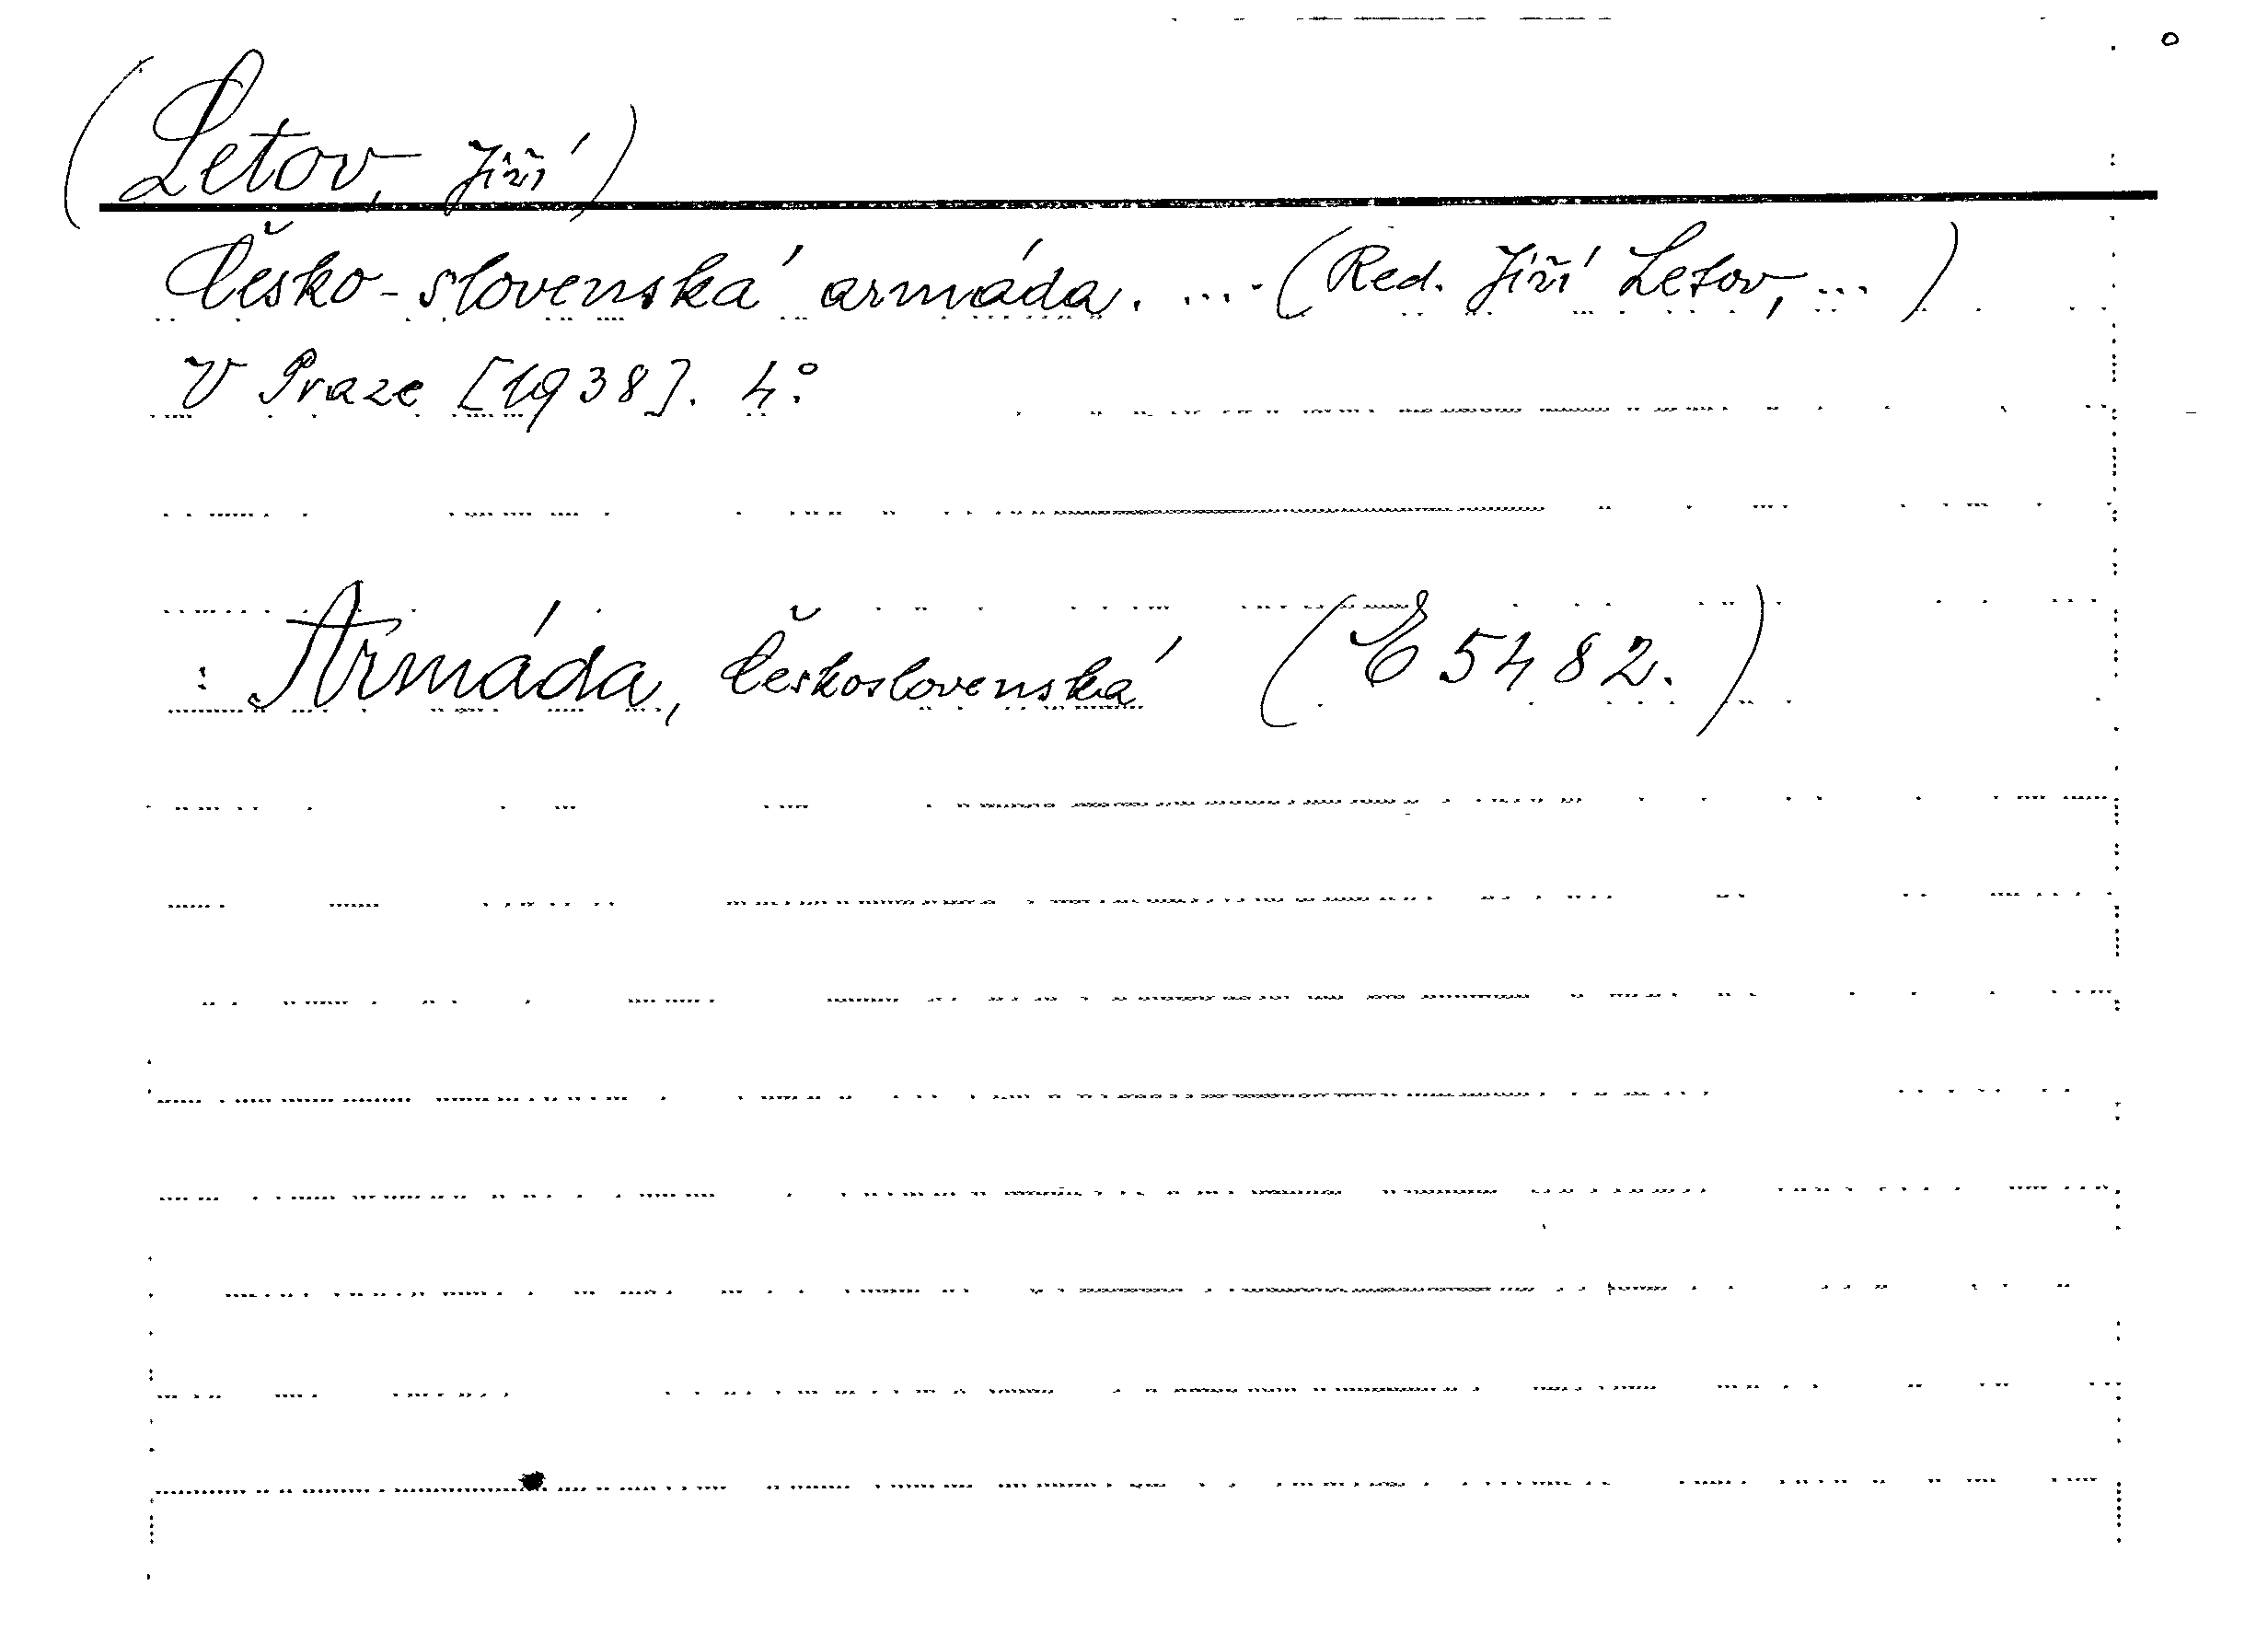 (Letov, Jiří)
Česko-slovenská armáda. ... (Red. Jiří Letov, ...)
V Praze [1938]. 4°.
: Armáda, Československá (E 5482.)